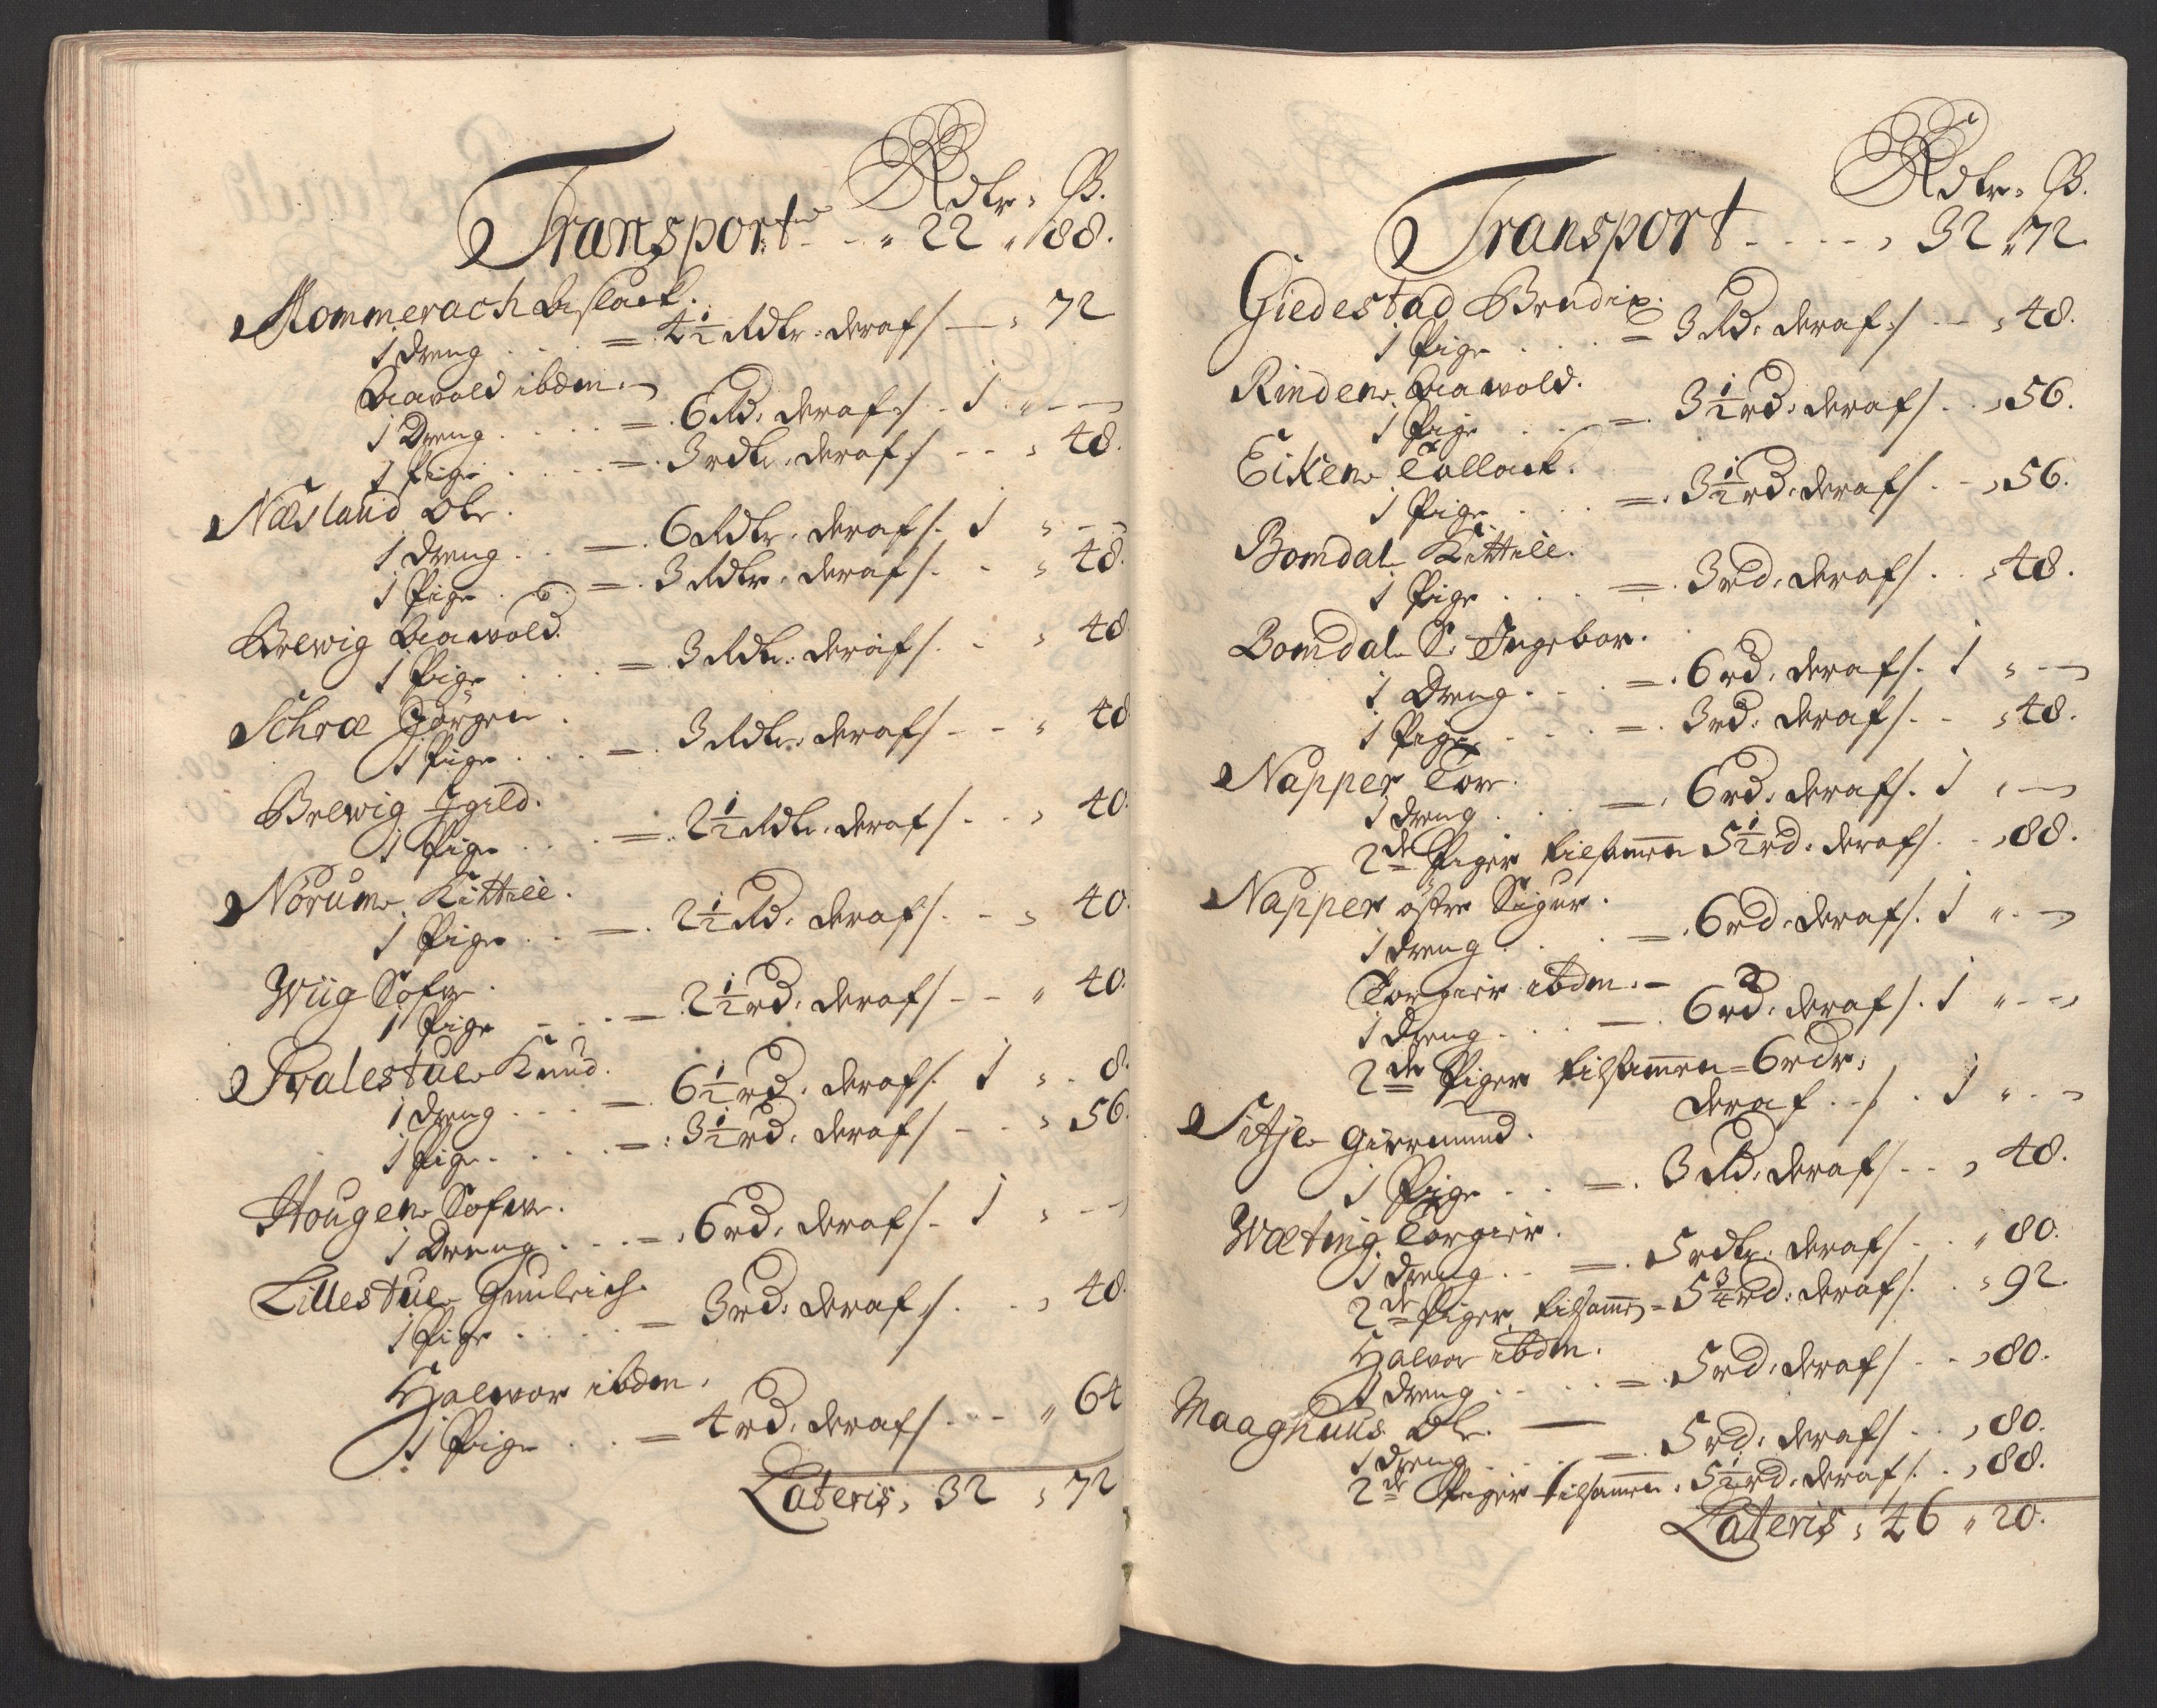 Rdlr: ß.
Transport - - " 22 " 88.
Mommerach Aslack.
1 dreng . . . = 4½ Rdlr: deraf /. — " 72
Tarald ibdm.
1 Dreng . . . = 6 Rd: deraf /. 1 " —
1 Pige . . . = 3 rdlr. deraf /. - - " 48.
Næsland Ole.
1 dreng . . = 6 Rdlr. deraf /. 1 " - -
1 Pige . . = 3 Rdlr. deraf /. - " 48.
Brewig
1 Pige . . . = 3 Rdlr. deraf /. - " 48
Schræ Jörgen.
1 Pige . . . = 3 Rdlr. deraf /. - - " 48
Brewig
1 Pige . . . = 2½ Rdlr. deraf /. - - " 40.
Norum Kittill.
1 Pige . . = 2½ Rd: deraf /. - - " 40.
Wiig Sofve.
1 Pige - . . = 2½ rd. deraf /. - - " 40.
Tvalestue Knud.
1 dreng . . . = 6½ rd. deraf /. 1 " - 8.
1 Pige . . . . = 3½ rd. deraf /. - - " 56.
Hougen Sofve.
1 Dreng . . . = 6 rd. deraf /. 1 " - -
Lillestue Gunleich.
1 Pige . . . . = 3 rd. deraf /. . . " 48.
Halvor ibdm.
1 Pige . . = 4 rd. deraf /. . - - " 64
Lateris " 32 " 72
Rdlr: ß.
Transport - - - - " 32 " 72.
Giedestad Bendix.
1 Pige . . . = 3 Rd: deraf /. - - " 48.
Rinden
1 Pige . . . = 3½ rd. deraf /. . " 56.
Eiken Tollack.
1 Pige . . . = 3½ rd. deraf /. - " 56.
Bomdal Kittill.
1 Pige . . . = 3 rd. deraf /. . " 48.
Bomdal S. Ingebor.
1 Dreng . . . = 6 rd. deraf /. 1 " - -
1 Pige - . . = 3 rd. deraf /. - " 48.
Napper Tor.
1 dreng . . . = 6 rd. deraf /. 1 " —
2de Piger tilsammen 5½ rd. deraf /. - " 88.
Napper östre Sigur.
1 dreng . . . = 6 rd. deraf /. 1 " - -
Torgier ibdm. -
1 dreng . . . = 6 rd. deraf /. 1 " - -
2de Piger tilsammen = 6 rdr:
deraf . - /. . 1 " . -
Sitje Giermund.
1 Pige . . = 3 Rd: deraf /. - - " 48.
Wæting Torgier.
1 dreng . . = 5 rdlr. deraf /. . . " 80.
2de Piger tilsamm = 5¾ rd: deraf /. . " 92.
Halvor ibdm.
1 dreng . . . . = 5 rd. deraf /. - - " 80.
Maaghuus Ole. —
1 dreng . . . . = 5 rd. deraf /. . . " 80.
2de Piger tilsammen. 5½ rd. deraf /. . " 88.
Lateris " 46 " 20.